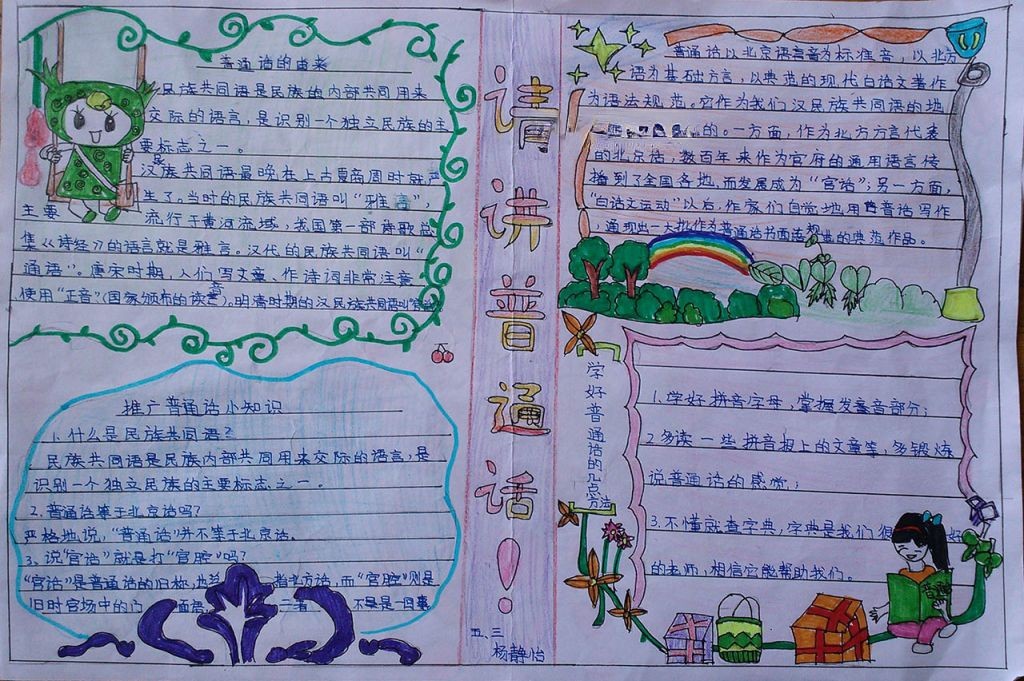 普通话的由来
民族共同语是民族的内部共同用来
交际的语言，是识别一个独立民族的主
要标志之一。
汉民族共同语最晚在上古夏商周时就产
生了。当时的民族共同语叫“雅言”，
主要流行于黄河流域，我国第一部诗歌总
集《诗经》的语言就是雅言。汉代的民族共同语叫“
通语”。唐宋时期，人们写文章、作诗词非常注意
使用“正音”（国家颁布的读音）。明清时期的汉民族共同语叫“官话
推广普通话小知识
1.什么是民族共同语？
民族共同语是民族内部共同用来交际的语言，是
识别一个独立民族的主要标志之一。
2.普通话等于北京话吗？
严格地说，“普通话”并不等于北京话。
3.说“官话”就是打“官腔”吗？
“官话”是普通话的旧称，也 指北方话，而“官腔”则是
旧时官场中的 二者 不是一回事
请讲普通话！
五、三
杨静怡
普通话以北京语言音为标准音，以北方
语为基础方言，以典范的现代白话文著作
为语法规范。它作为我们汉民族共同语的地
的。一方面，作为北方方言代表
的北京话，数百年来作为官府的通用语言传
播到了全国各地，而发展成为“官话”；另一方面，
“白话文运动”以后，作家们自觉地用普音话写作
涌现出一大批作为普通话书面语规范的典范作品。
学好普通话的几点方法
1.学好拼音字母，掌握发音部分；
2.多读一些拼音报上的文章等，多锻炼
说普通话的感觉；
3.不懂就查字典，字典是我们很 好
的老师，相信它能帮助我们。